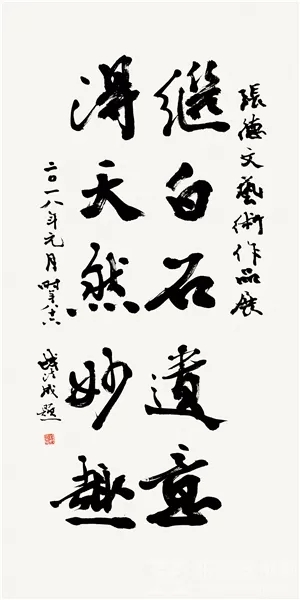 張德文藝術作品展
繼白石遺意
得天然妙趣
二〇一八年元月時年
錢法成題